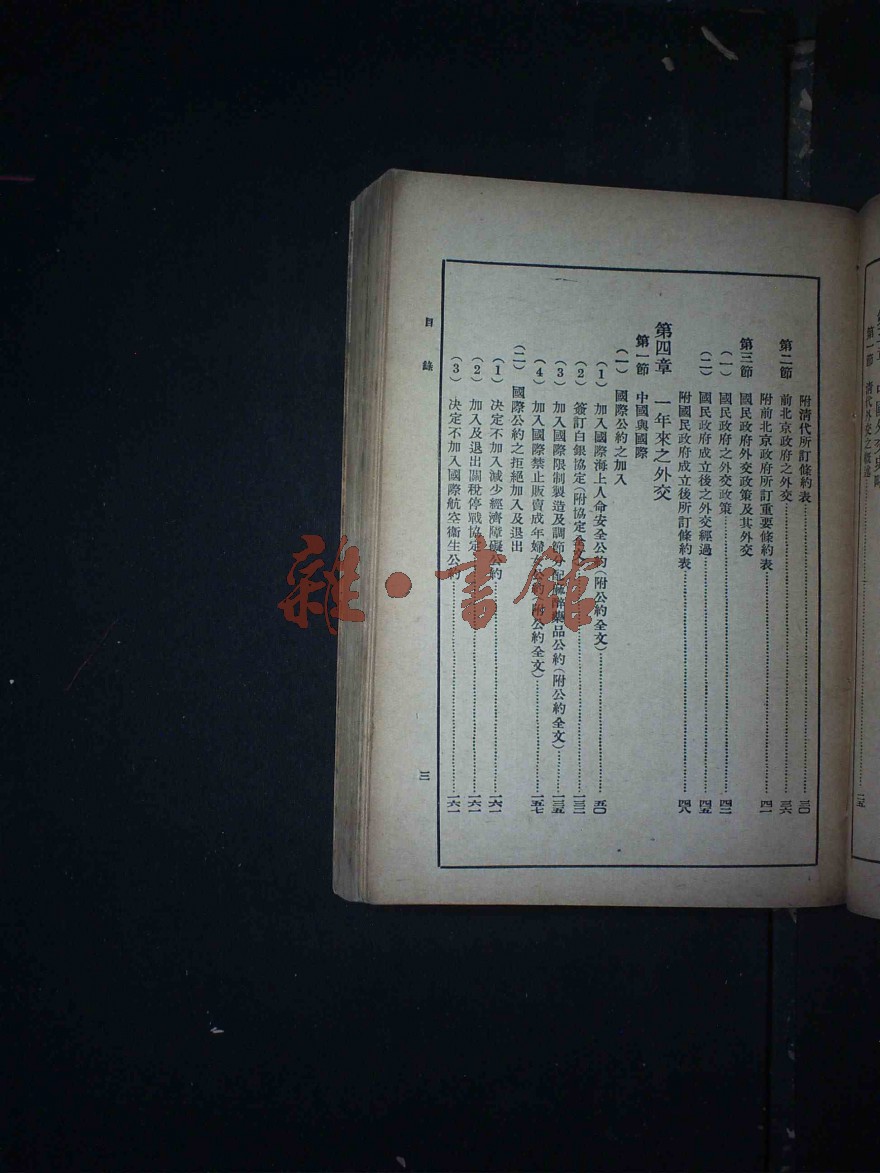 第一節 清代外交之概述……一五
附清代所訂條約表……三〇
第二節 前北京政府之外交……三六
附前北京政府所訂重要條約表……四一
第三節 國民政府外交政策及其外交
(一) 國民政府之外交政策……四二
(二) 國民政府成立後之外交經過……四五
附國民政府成立後所訂條約表……四八
第四章 一年來之外交
第一節 中國與國際
(一) 國際公約之加入
(1) 加入國際海上人命安全公約(附公約全文)……五〇
(2) 簽訂白銀協定(附協定全文)……一三二
(3) 加入國際限制製造及調節分配麻醉藥品公約(附公約全文)……一三五
(4) 加入國際禁止販賣成年婦女公約(附公約全文)……一五七
(二) 國際公約之拒絕加入及退出
(1) 決定不加入減少經濟障礙公約……一六一
(2) 加入及退出關稅停戰協定……一六一
(3) 決定不加入國際航空衛生公約……一六一
目錄 三
雜·書館